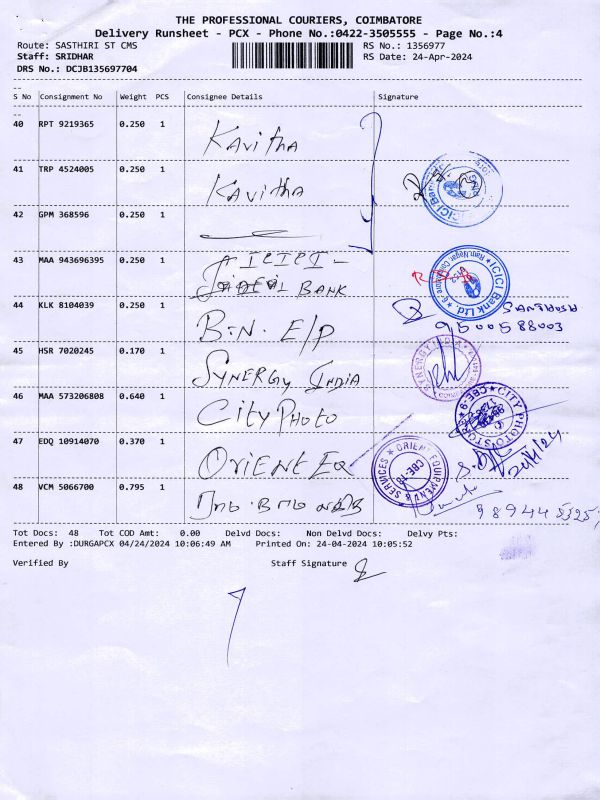 THE PROFESSIONAL COURIERS, COIMBATORE
Delivery Runsheet - PCX - Phone No.:0422-3505555 - Page No.:4
Route: SASTHIRI ST CMS
RS No.: 1356977
Staff: SRIDHAR
RS Date: 24-Apr-2024
DRS No.: DCJB135697704
S No Consignment No Weight PCS Consignee Details Signature
40 RPT 9219365 0.250 1 Kavitha
41 TRP 4524005 0.250 1 Kavitha
42 GPM 368596 0.250 1
43 MAA 943696395 0.250 1 ICICI - BANK
ICICI Bank Ltd.
44 KLK 8104039 0.250 1 B.N. E/P
45 HSR 7020245 0.170 1 Synergy India
46 MAA 573206808 0.640 1 City Photo
CITY PHOTO STORE CBE-9
47 EDQ 10914070 0.370 1 Orient Eq
ORIENT EQUIPMENT & SERVICES CBE-18
24/4/24
48 VCM 5066700 0.795 1
Tot Docs: 48 Tot COD Amt: 0.00 Delvd Docs: Non Delvd Docs: Delvy Pts:
Entered By :DURGAPCX 04/24/2024 10:06:49 AM Printed On: 24-04-2024 10:05:52
Verified By Staff Signature